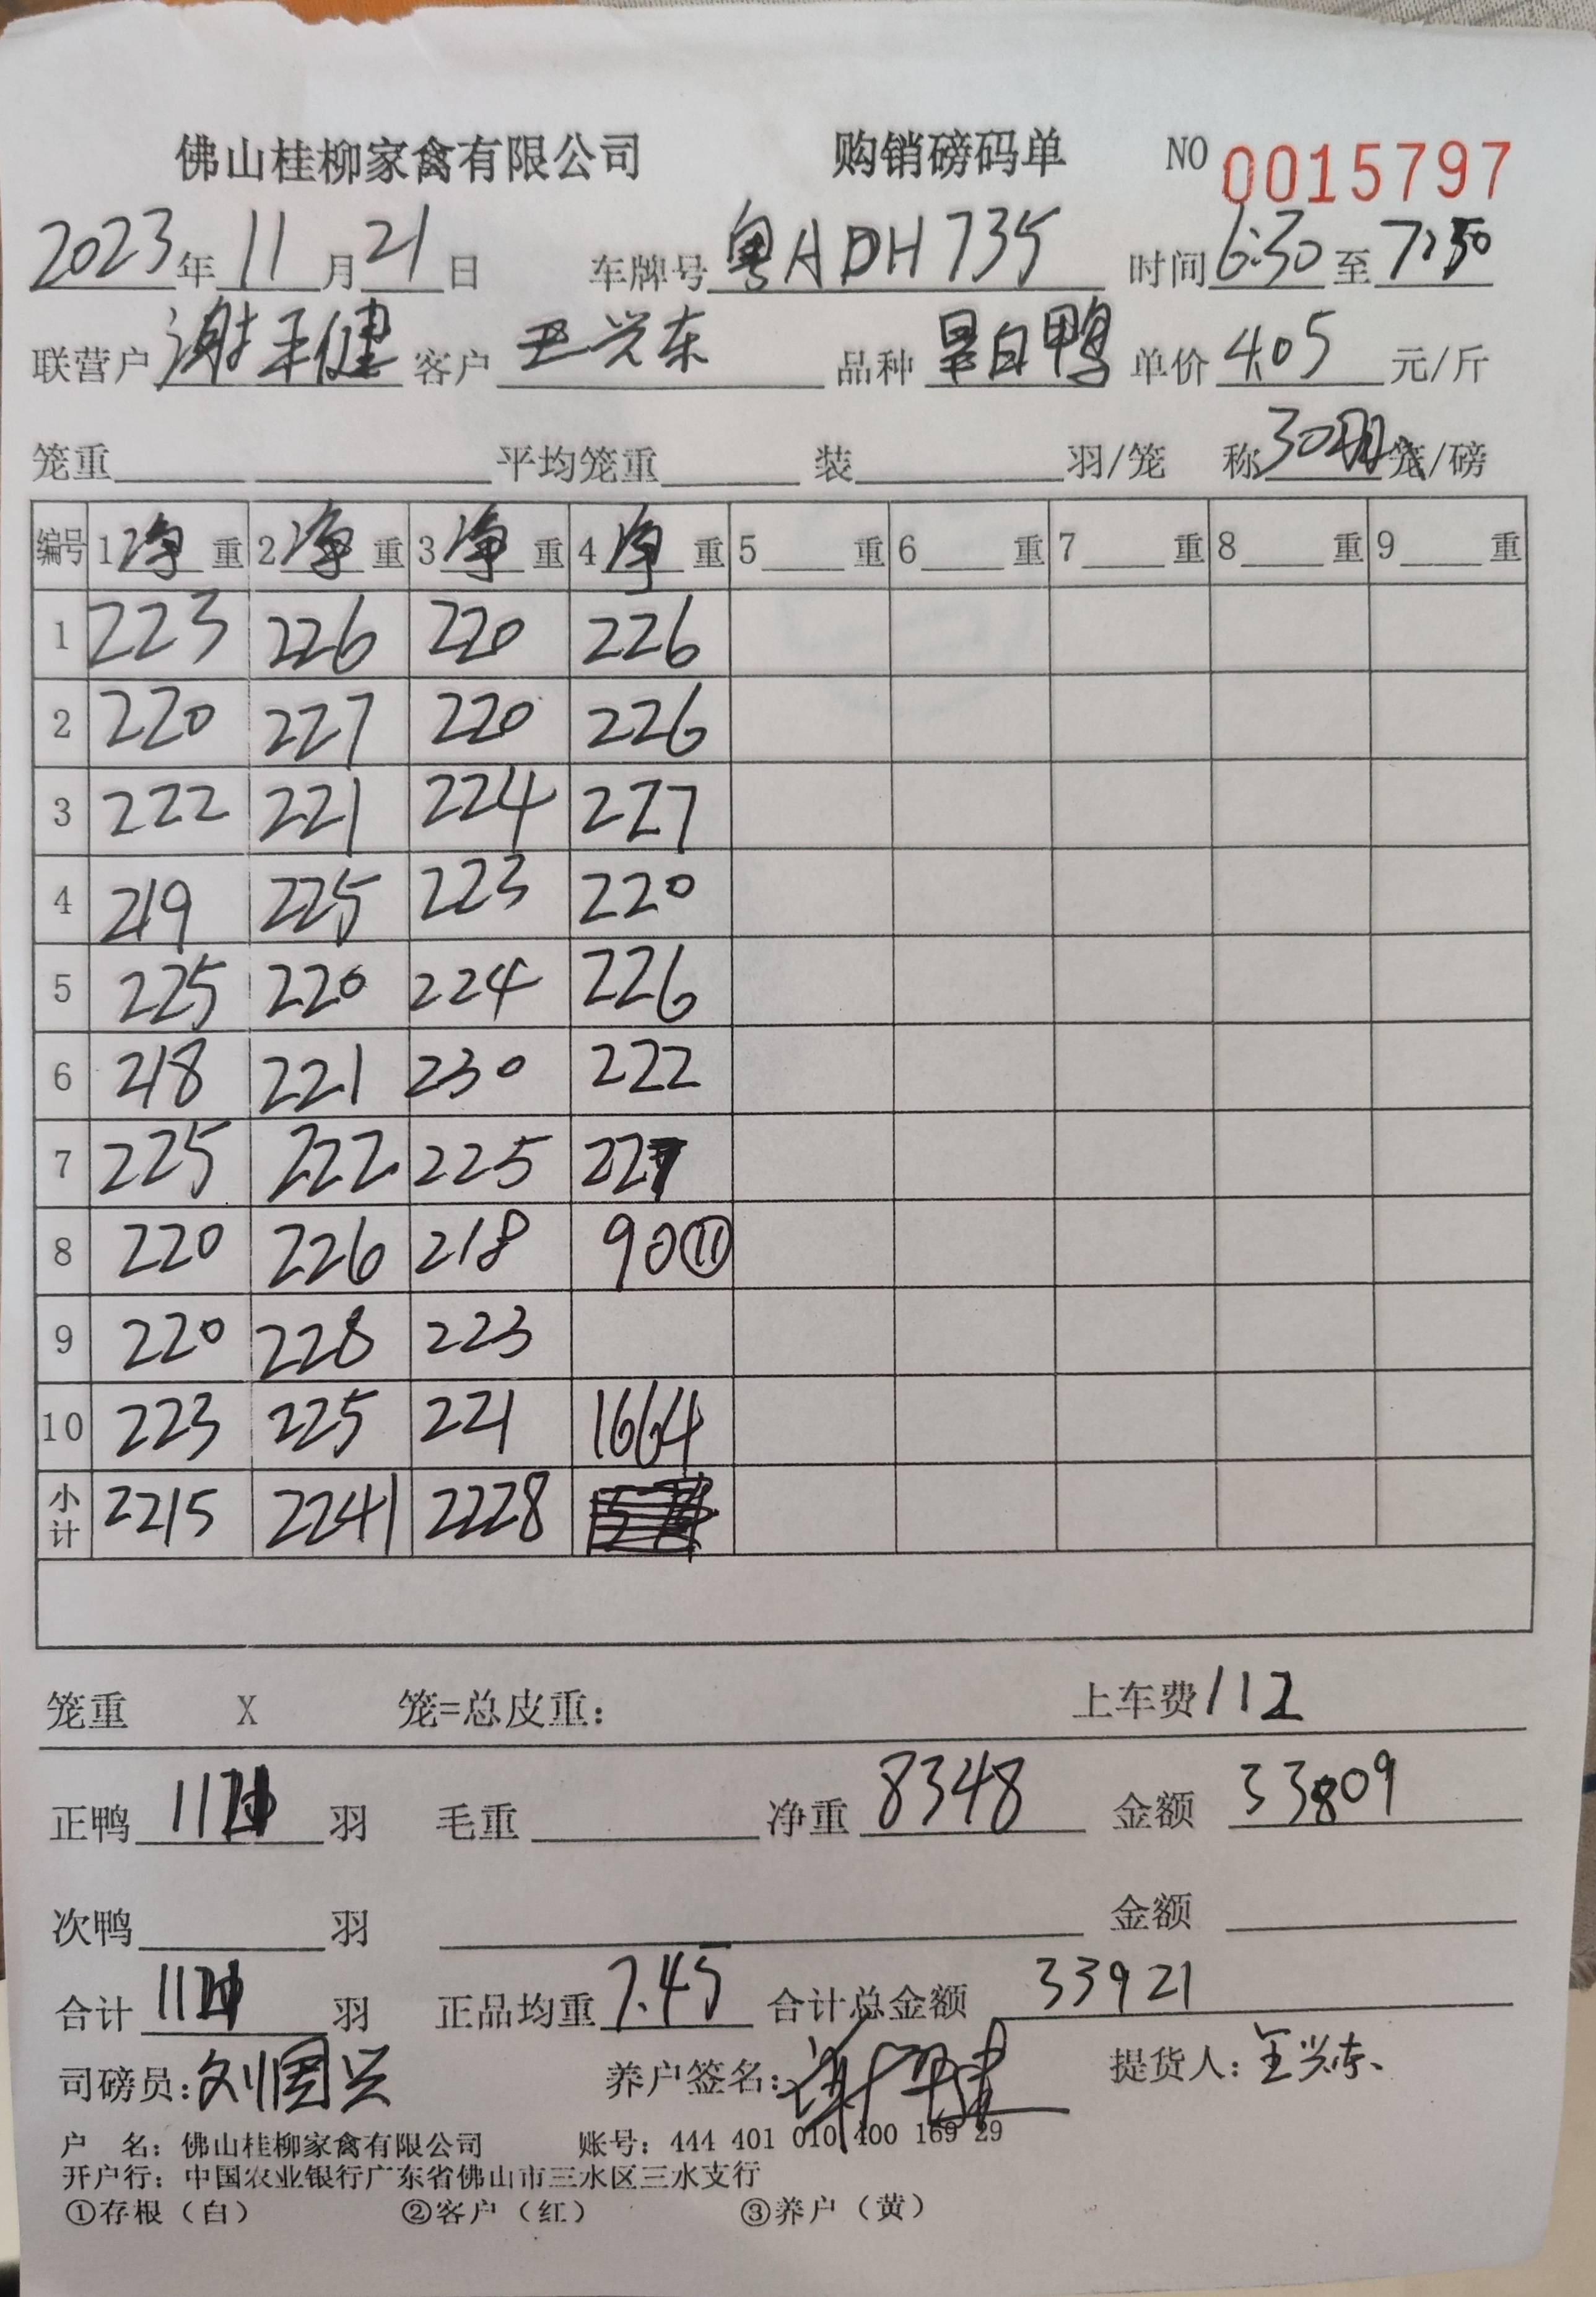 佛山桂柳家禽有限公司 购销磅码单 NO 0015797
2023年11月21日 车牌号粤ADH735 时间6:30至7:50
联营户谢 健 客户 兴东 品种 白鸭 单价4.05元/斤
笼重 平均笼重 装 羽/笼 称30羽笼/磅
编号 1净重 2净重 3净重 4净重 5 重 6 重 7 重 8 重 9 重
1 223 226 220 226
2 220 227 220 226
3 222 221 224 227
4 219 225 223 220
5 225 220 224 226
6 218 221 230 222
7 225 222 225 227
8 220 226 218 90⑪
9 220 228 223
10 223 225 221 1664
小计 2215 2241 2228
笼重 X 笼=总皮重: 上车费112
正鸭1121羽 毛重 净重8348 金额33809
次鸭 羽 金额
合计1121羽 正品均重7.45 合计总金额33921
司磅员:刘国兴 养户签名: 提货人: 兴东
户 名: 佛山桂柳家禽有限公司 账号: 444 401 010 400 169 29
开户行: 中国农业银行广东省佛山市三水区三水支行
①存根（白） ②客户（红） ③养户（黄）